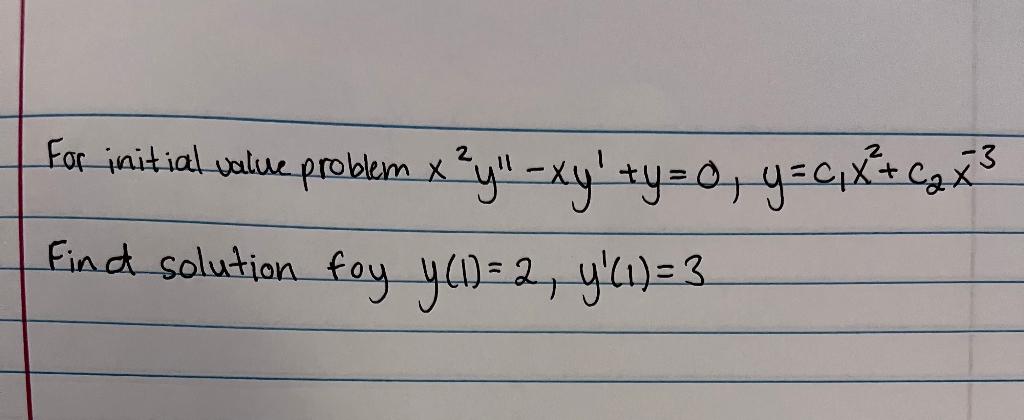 For initial value problem x²y'' - xy' + y = 0, y = c₁x² + c₂x⁻³
Find solution foy y(1) = 2, y'(1) = 3